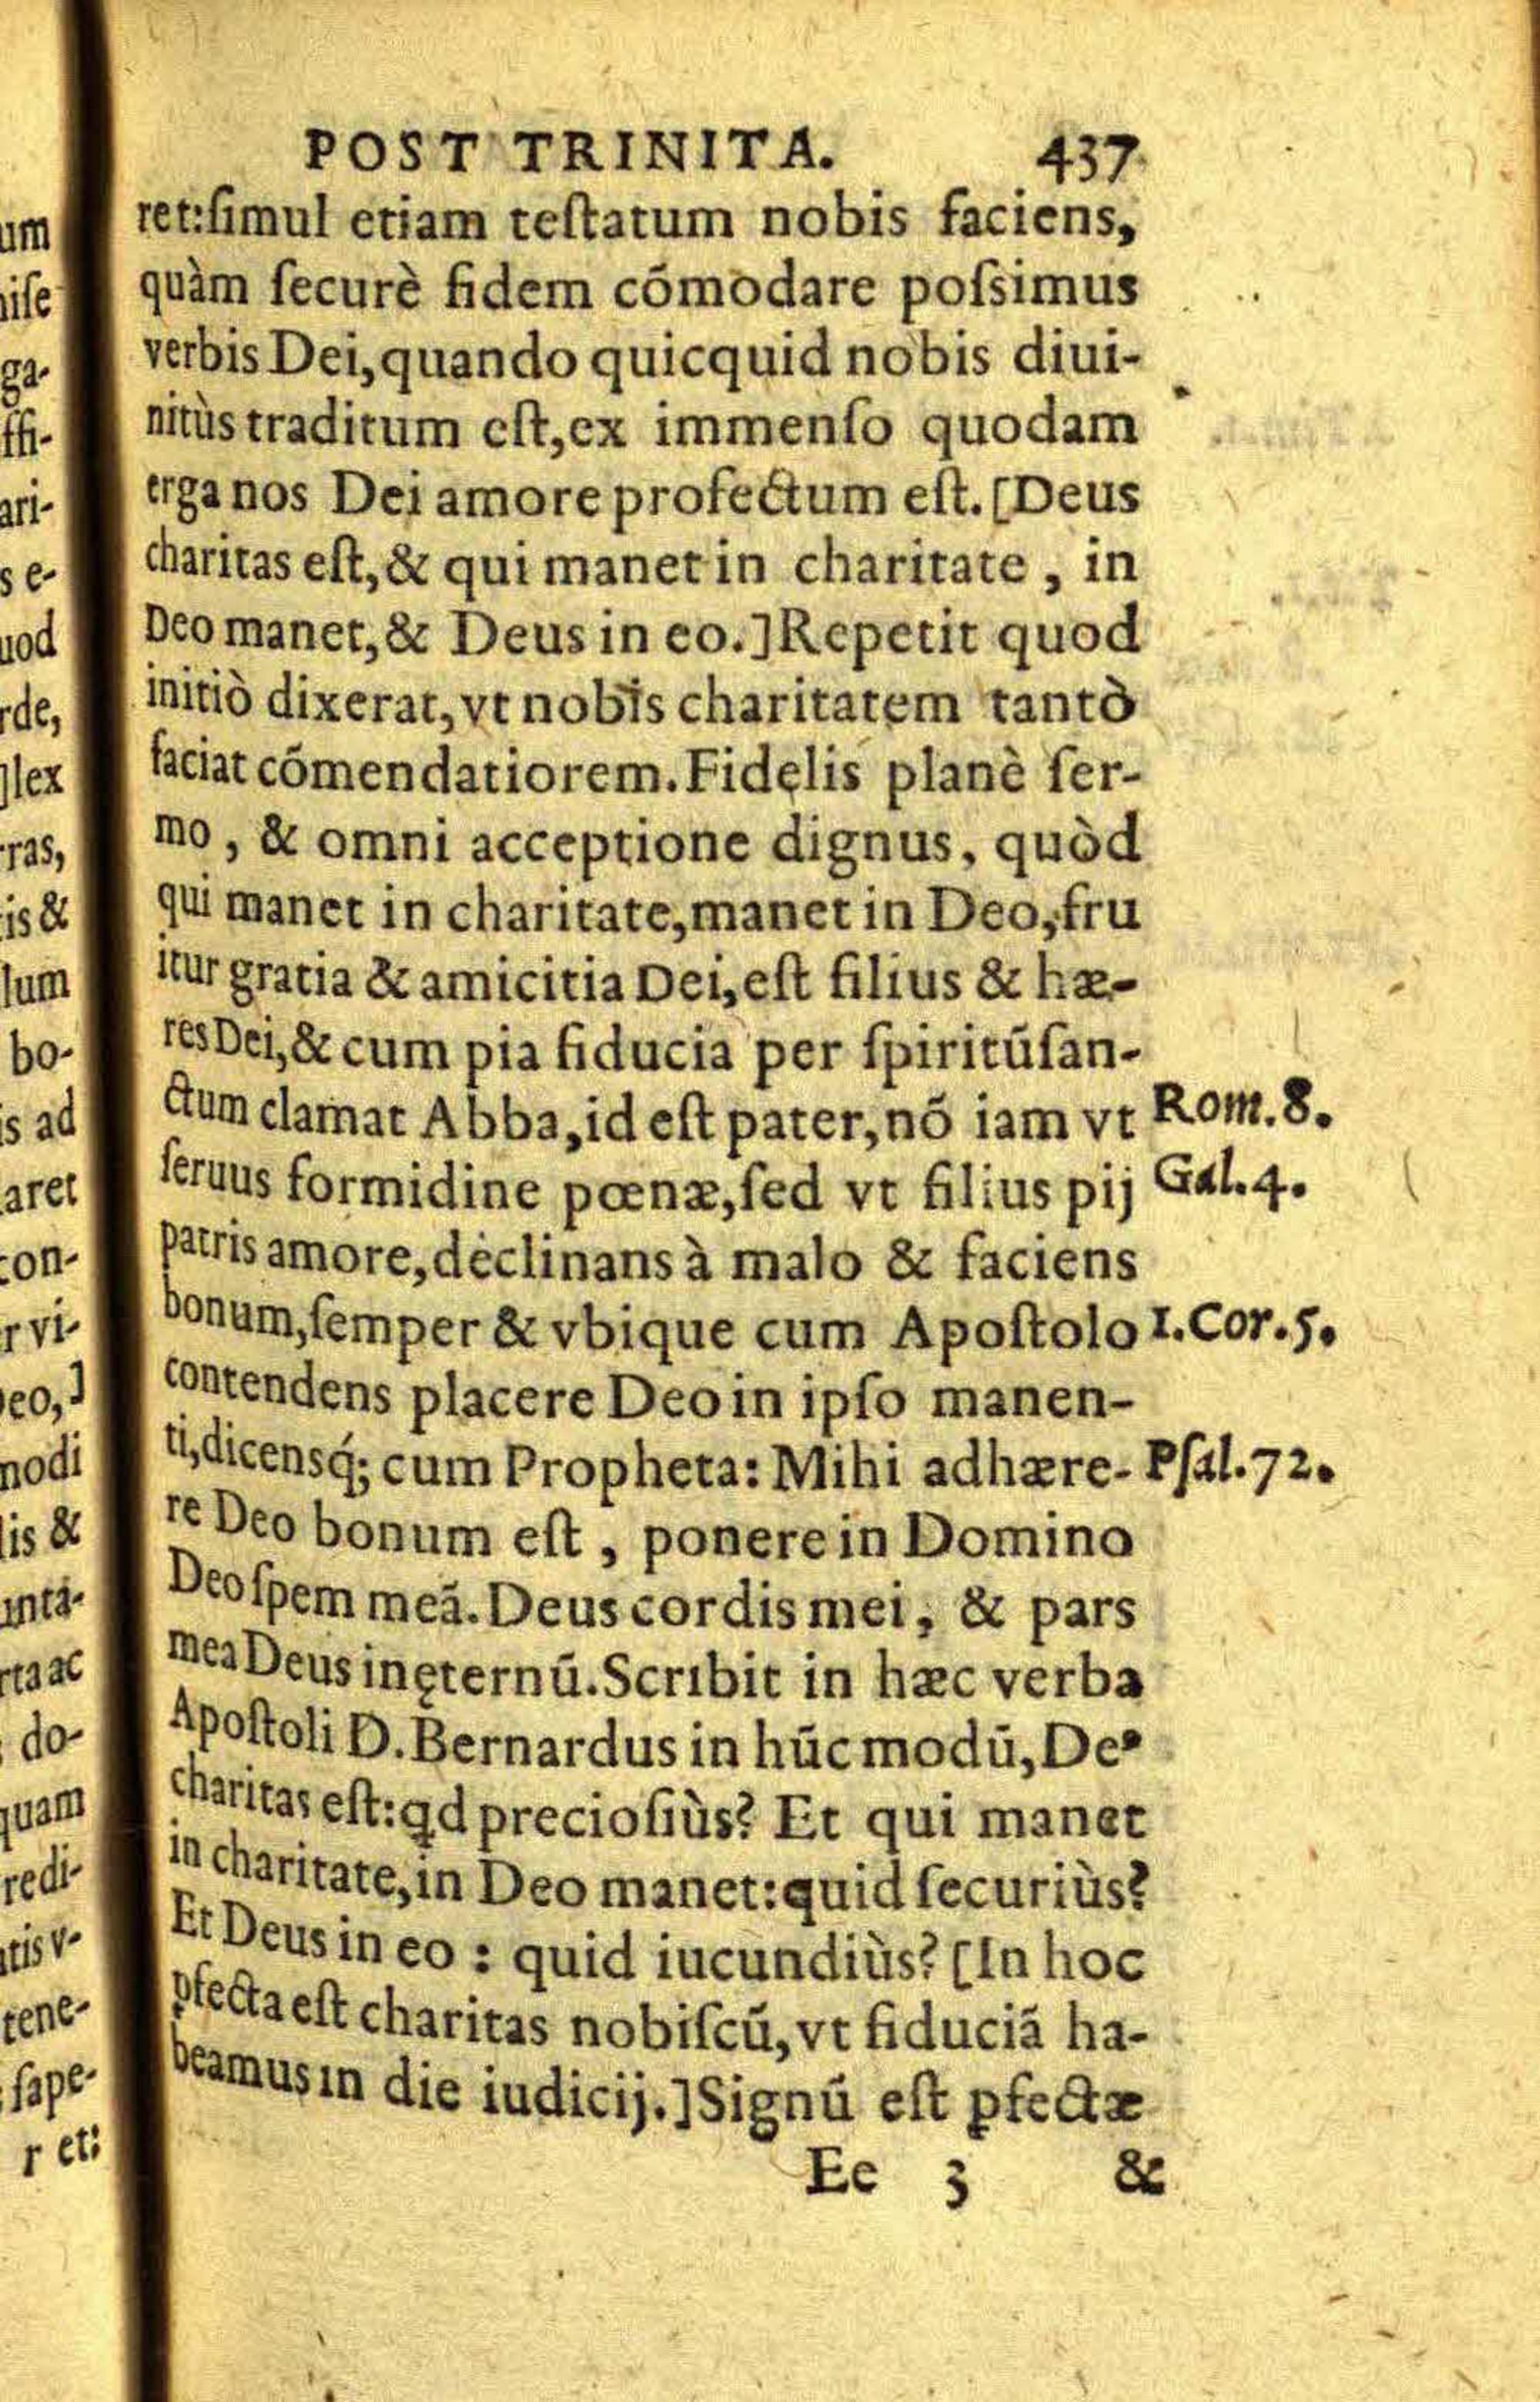 POST TRINITA. 437
ret:ſimul etiam teſtatum nobis faciens,
quàm ſecurè fidem cõmodare poſsimus
verbis Dei,quando quicquid nobis diui-
nitùs traditum eſt,ex immenſo quodam
erga nos Dei amore profectum eſt.[Deus
charitas eſt,& qui manet in charitate , in
Deo manet,& Deus in eo.]Repetit quod
initiò dixerat,vt nobis charitatem tantò
faciat cõmendatiorem.Fidelis planè ſer-
mo , & omni acceptione dignus, quòd
qui manet in charitate,manet in Deo,fru
itur gratia & amicitia Dei,eſt filius & hæ-
res Dei,& cum pia fiducia per ſpiritũſan-
ctum clamat Abba,id eſt pater,nõ iam vt Rom.8.
ſeruus formidine pœnæ,ſed vt filius pij Gal.4.
patris amore,declinans à malo & faciens
bonum,ſemper & vbique cum Apoſtolo 1.Cor.5.
contendens placere Deo in ipſo manen-
ti,dicensq́; cum Propheta: Mihi adhære- Pſal.72.
re Deo bonum eſt , ponere in Domino
Deo ſpem meã.Deus cordis mei, & pars
mea Deus in ęternũ.Scribit in hæc verba
Apoſtoli D.Bernardus in hũc modũ,Deꝰ
charitas eſt:qd precioſiùs? Et qui manet
in charitate,in Deo manet:quid ſecuriùs?
Et Deus in eo : quid iucundiùs? [In hoc
ꝑfecta eſt charitas nobiſcũ,vt fiduciã ha-
beamus in die iudicij.]Signũ eſt ꝑfectæ
Ee 3 &
um
iſe
ga-
ffi-
ari-
s e-
uod
rde,
]lex
ras,
is &
lum
bo-
is ad
aret
con-
r vi-
eo,]
nodi
lis &
inta-
rta ac
do-
quam
redi-
tis v-
tene-
ſape-
r et: